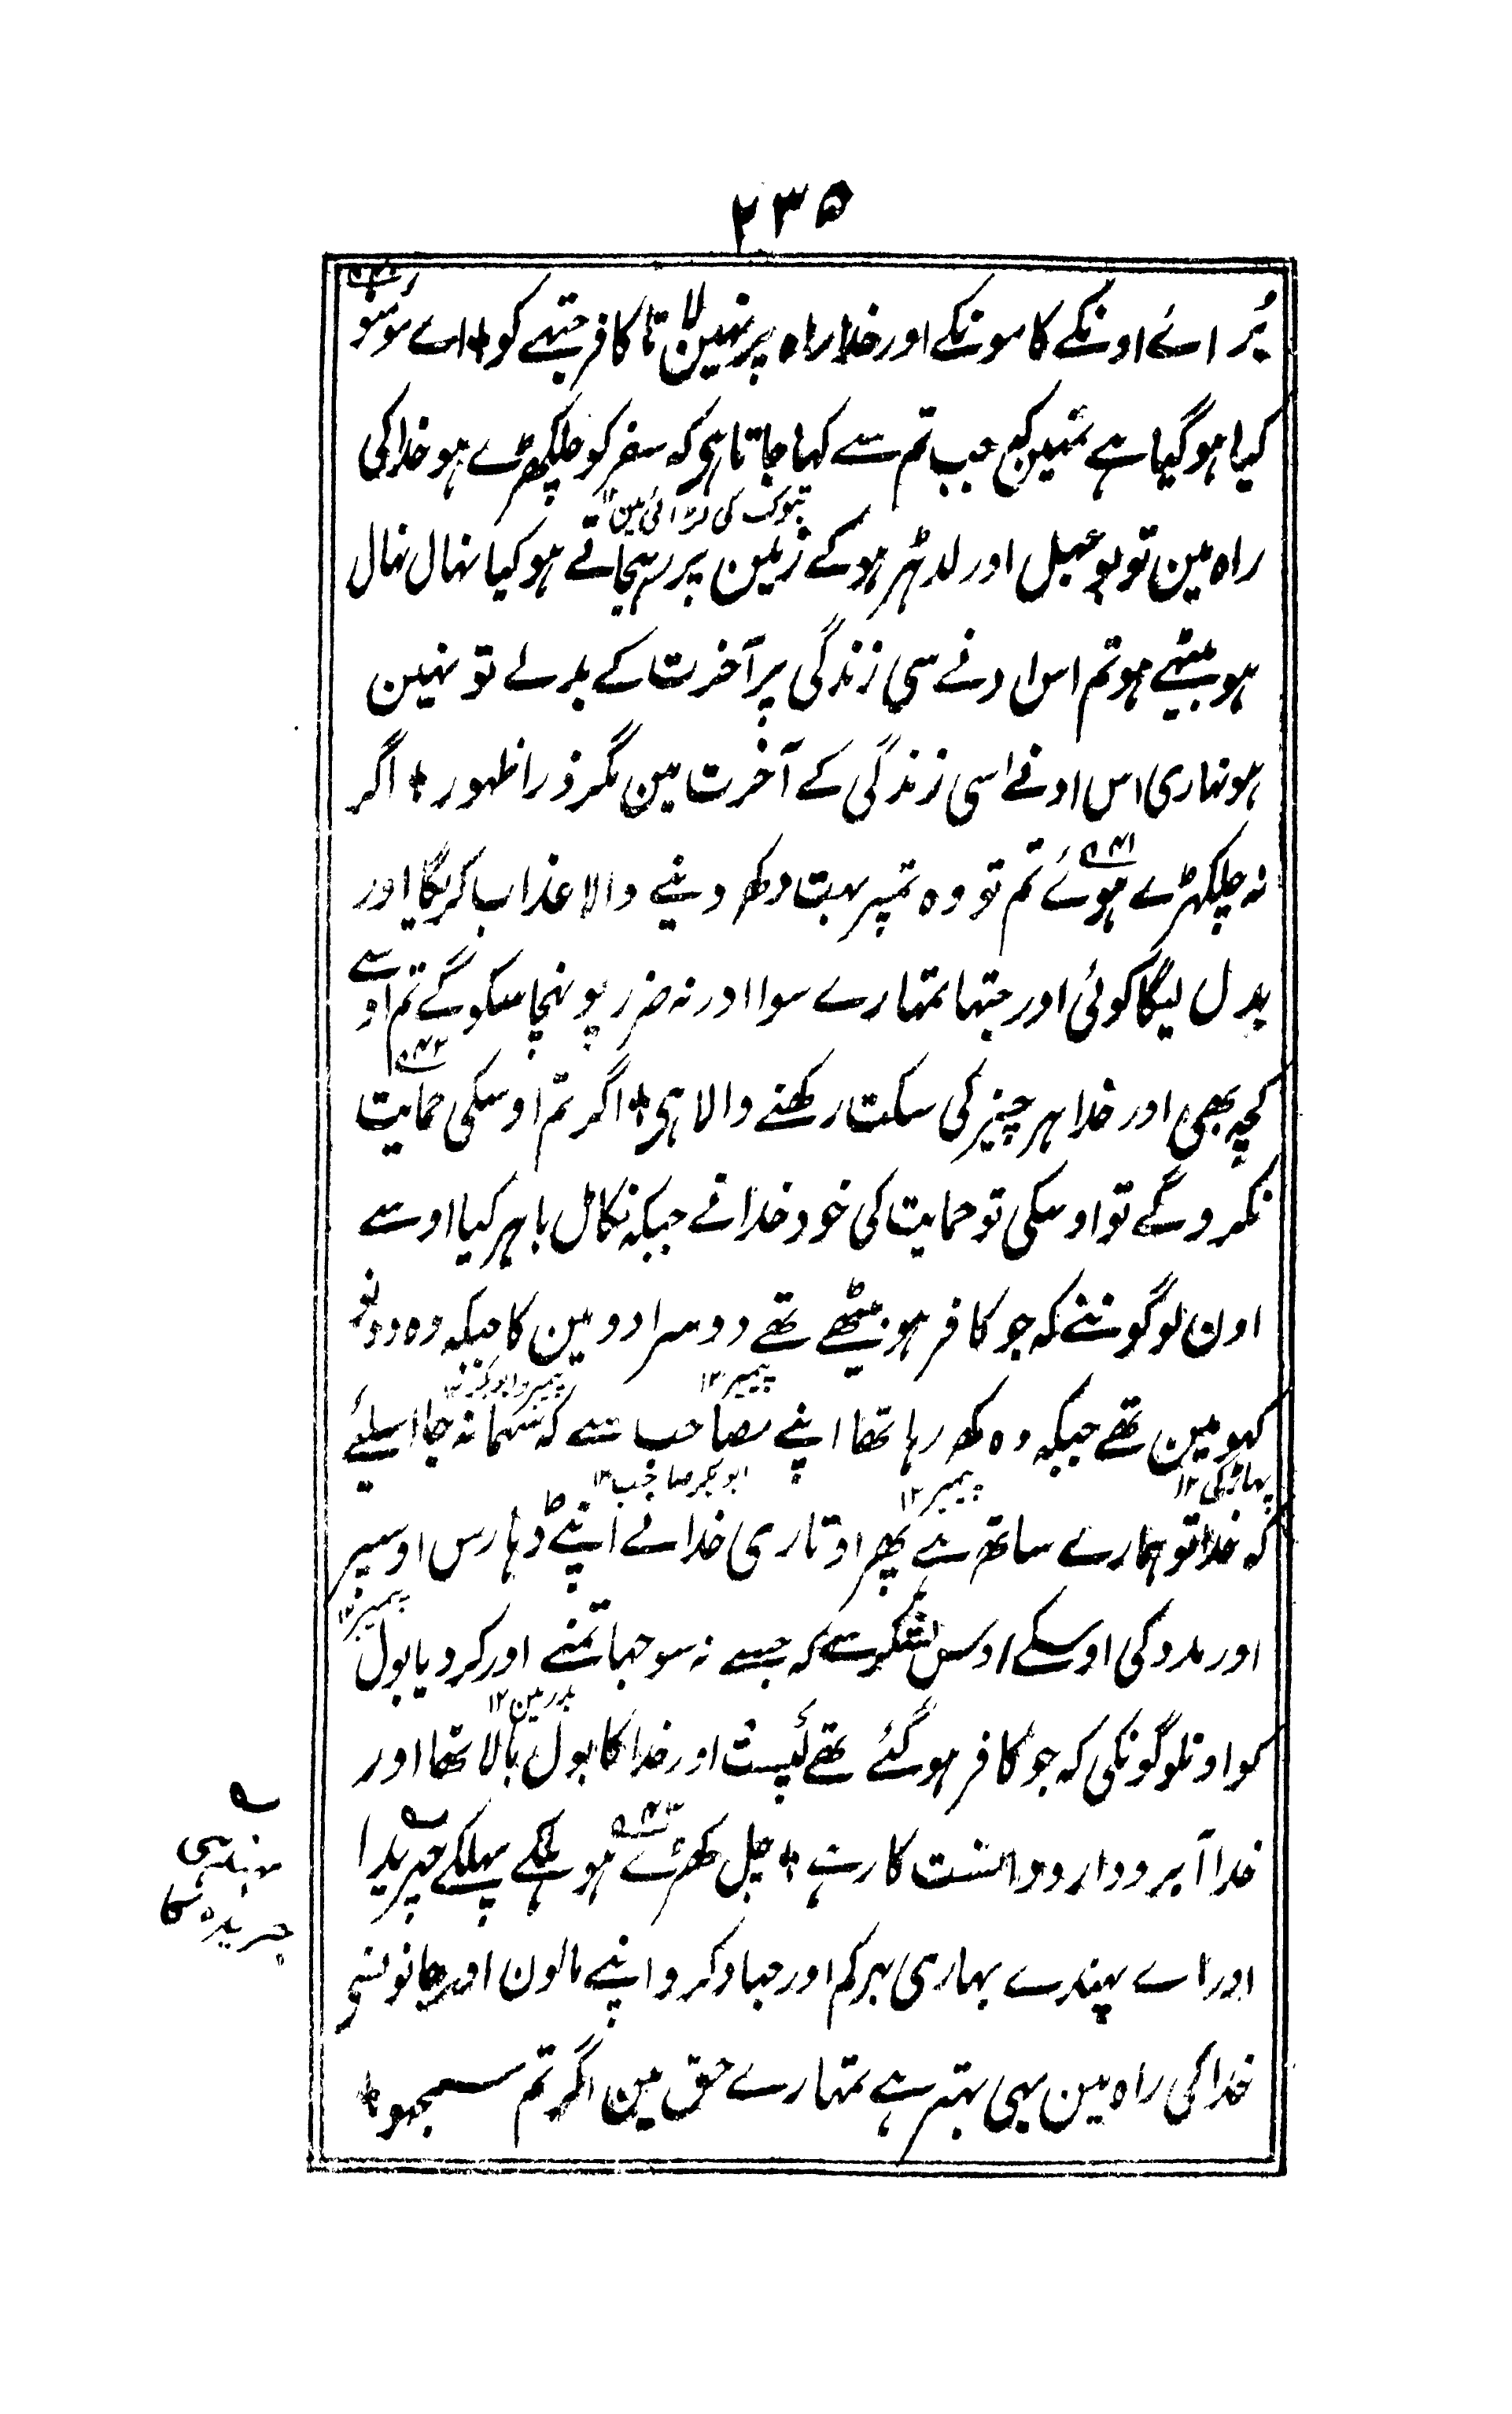 ۲۳۵
بُر ائے اونکے کامونکے اور خدا راہ پر نہین لاتا کافر جتہے کو * اے مومنو
کیا ہو گیا ہے تمہین کہ جب تم سے کہا جاتا ہی کہ سفر کو چلکھڑے ہو خدا کی
تبوک کی لڑائی مین ۱۲
راہ مین تو بوجھل اور لد ٹھر ہو کے زمین پر رہجاتے ہو کیا نہال نہال
ہو بیٹھے ہو تم اس ادنے سی زندگی پر آخرت کے بدلے تو نہین
ہونہاری اس ادنے اسی زندگی کے آخرت مین مگر ذرا ظہور * اگر
نہ چلکہڑے ہوئے تم تو وہ تمپر بہت دکھ دینے والا عذاب کریگا اور
بدل لیگا کوئی اور جتہا تمہارے سوا اور نہ ضرر پونہچا سکو گے تم اوسے
کچہ بھی اور خدا ہر چیز کی سکت رکھنے والا ہی * اگر تم اوسکی حمایت
نکرو گے تو اوسکی تو حمایت کی خود خدا نے جبکہ نکال باہر کیا اوسے
اون لوگوننے کہ جو کافر ہو بیٹھے تھے دوسرا دو مین کا جبکہ وہ دونو
پیمبر ۱۲ پیمبر و ابوبکر ۱۲
کہو مین تھے جبکہ وہ کھ رہا تھا اپنے مصاحب سے کہ سہما نہ جا اسلئے
پہاڑ کی ۱۲ پیمبر ۱۲ ابوبکر صاحب ۱۲
کہ خدا تو ہمارے ساتھ ہے پھر اوتاری خدا نے اپنے ڈہارس اوسپر
پیمبر ۱۲
اور مدد کی اوسکے اوس لشکر سے کہ جسے نہ سوجہا تمنے اور کر دیا بول
بدر مین ۱۲
کو اونلوگونکی کہ جو کافر ہو گئے تھے پست اور خدا کا بول بالا تھا اور
خدا آبرودار و دانست کار ہے * چل کھڑے ہو ہلکے پہلکے جریدا
اور اے پہندے بہاری بہرکم اور جہاد کرو اپنے مالون اور جانونسے
خدا کی راہ مین یہی بہتر ہے تمہارے حق مین اگر تم سمجہو *
مہندہی
جریدہ کا